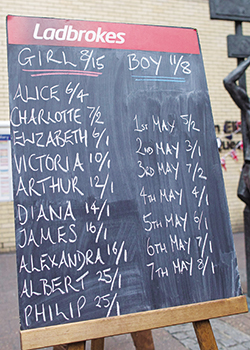 Ladbrokes
GIRL 8/15 BOY 11/8
ALICE 6/4
CHARLOTTE 7/2
ELIZABETH 6/1
VICTORIA 10/1
ARTHUR 12/1
DIANA 14/1
JAMES 16/1
ALEXANDRA 16/1
ALBERT 25/1
PHILIP 25/1
1ST MAY 5/2
2ND MAY 3/1
3RD MAY 7/2
4TH MAY 4/1
5TH MAY 6/1
6TH MAY 7/1
7TH MAY 8/1